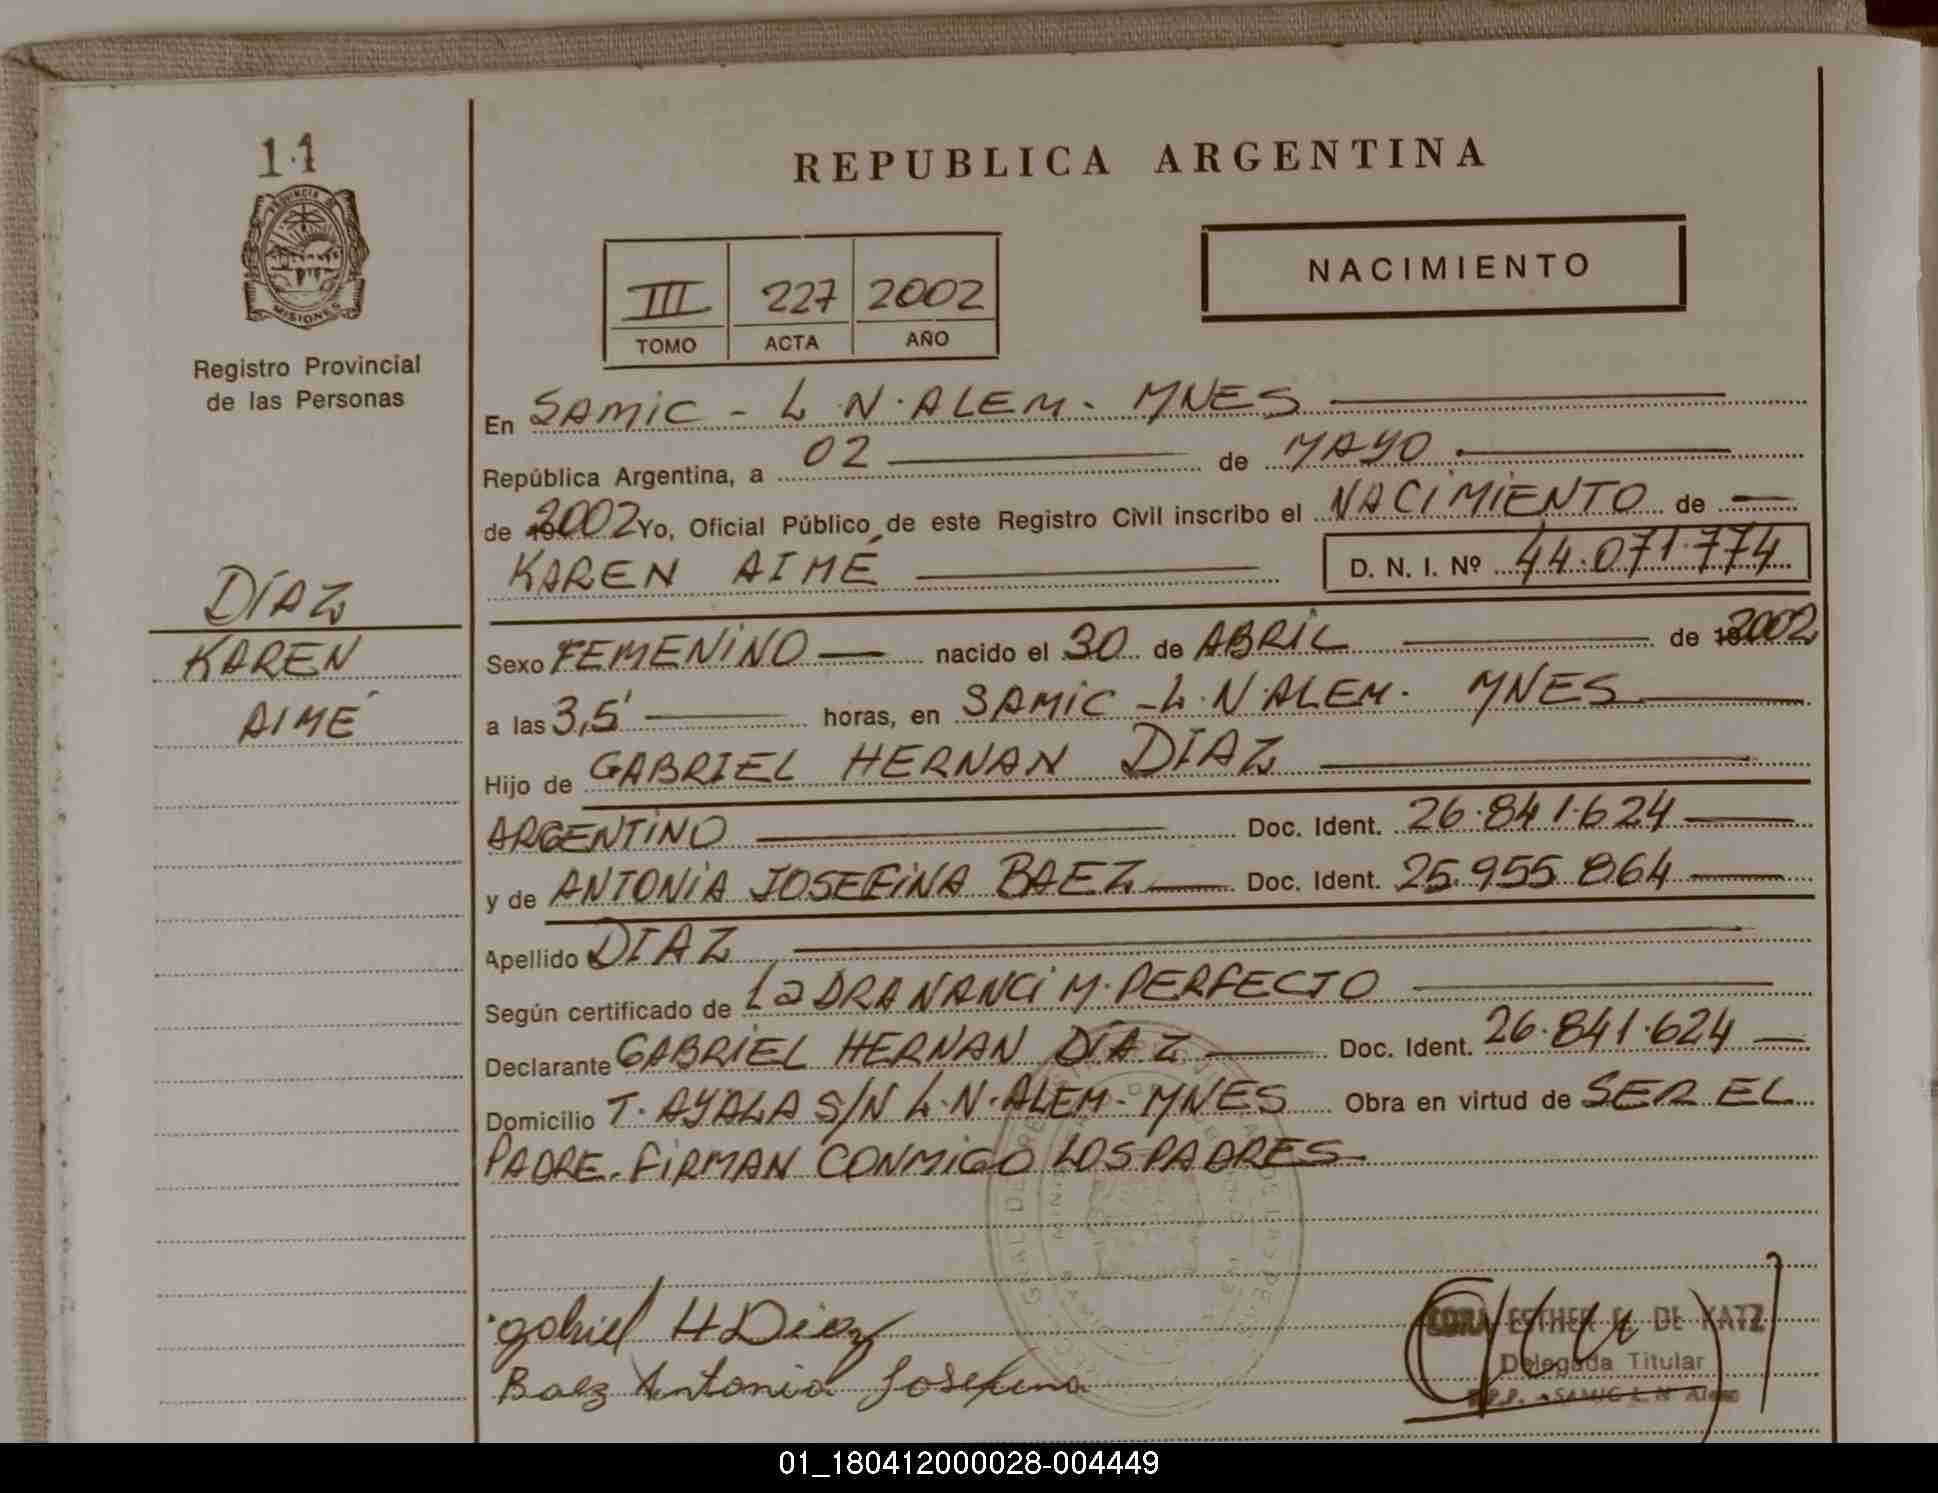 11
PROVINCIA DE
MISIONES
Registro Provincial
de las Personas
DÍAZ
KAREN
AIMÉ
REPUBLICA ARGENTINA
III 227 2002
TOMO ACTA AÑO
NACIMIENTO
En SAMIC - L.N.ALEM. MNES
República Argentina, a 02 de MAYO
de 2002 Yo, Oficial Público de este Registro Civil inscribo el NACIMIENTO de
KAREN AIMÉ D. N. I. Nº 44.071.774
Sexo FEMENINO nacido el 30 de ABRIL de 2002
a las 3,5' horas, en SAMIC - L.N.ALEM. MNES
Hijo de GABRIEL HERNAN DIAZ
ARGENTINO Doc. Ident. 26.841.624
y de ANTONIA JOSEFINA BAEZ Doc. Ident. 25.955.864
Apellido DIAZ
Según certificado de La DRA NANCI M. PERFECTO
Declarante GABRIEL HERNAN DÍAZ Doc. Ident. 26.841.624
Domicilio T. AYALA S/N L.N.ALEM - MNES Obra en virtud de SER EL
PADRE. FIRMAN CONMIGO LOS PADRES
gabriel H Diaz
Baez Antonia Josefina
CORA ESTHER DE KATZ
Delegada Titular
SAMIC L. N. Alem
01_180412000028-004449